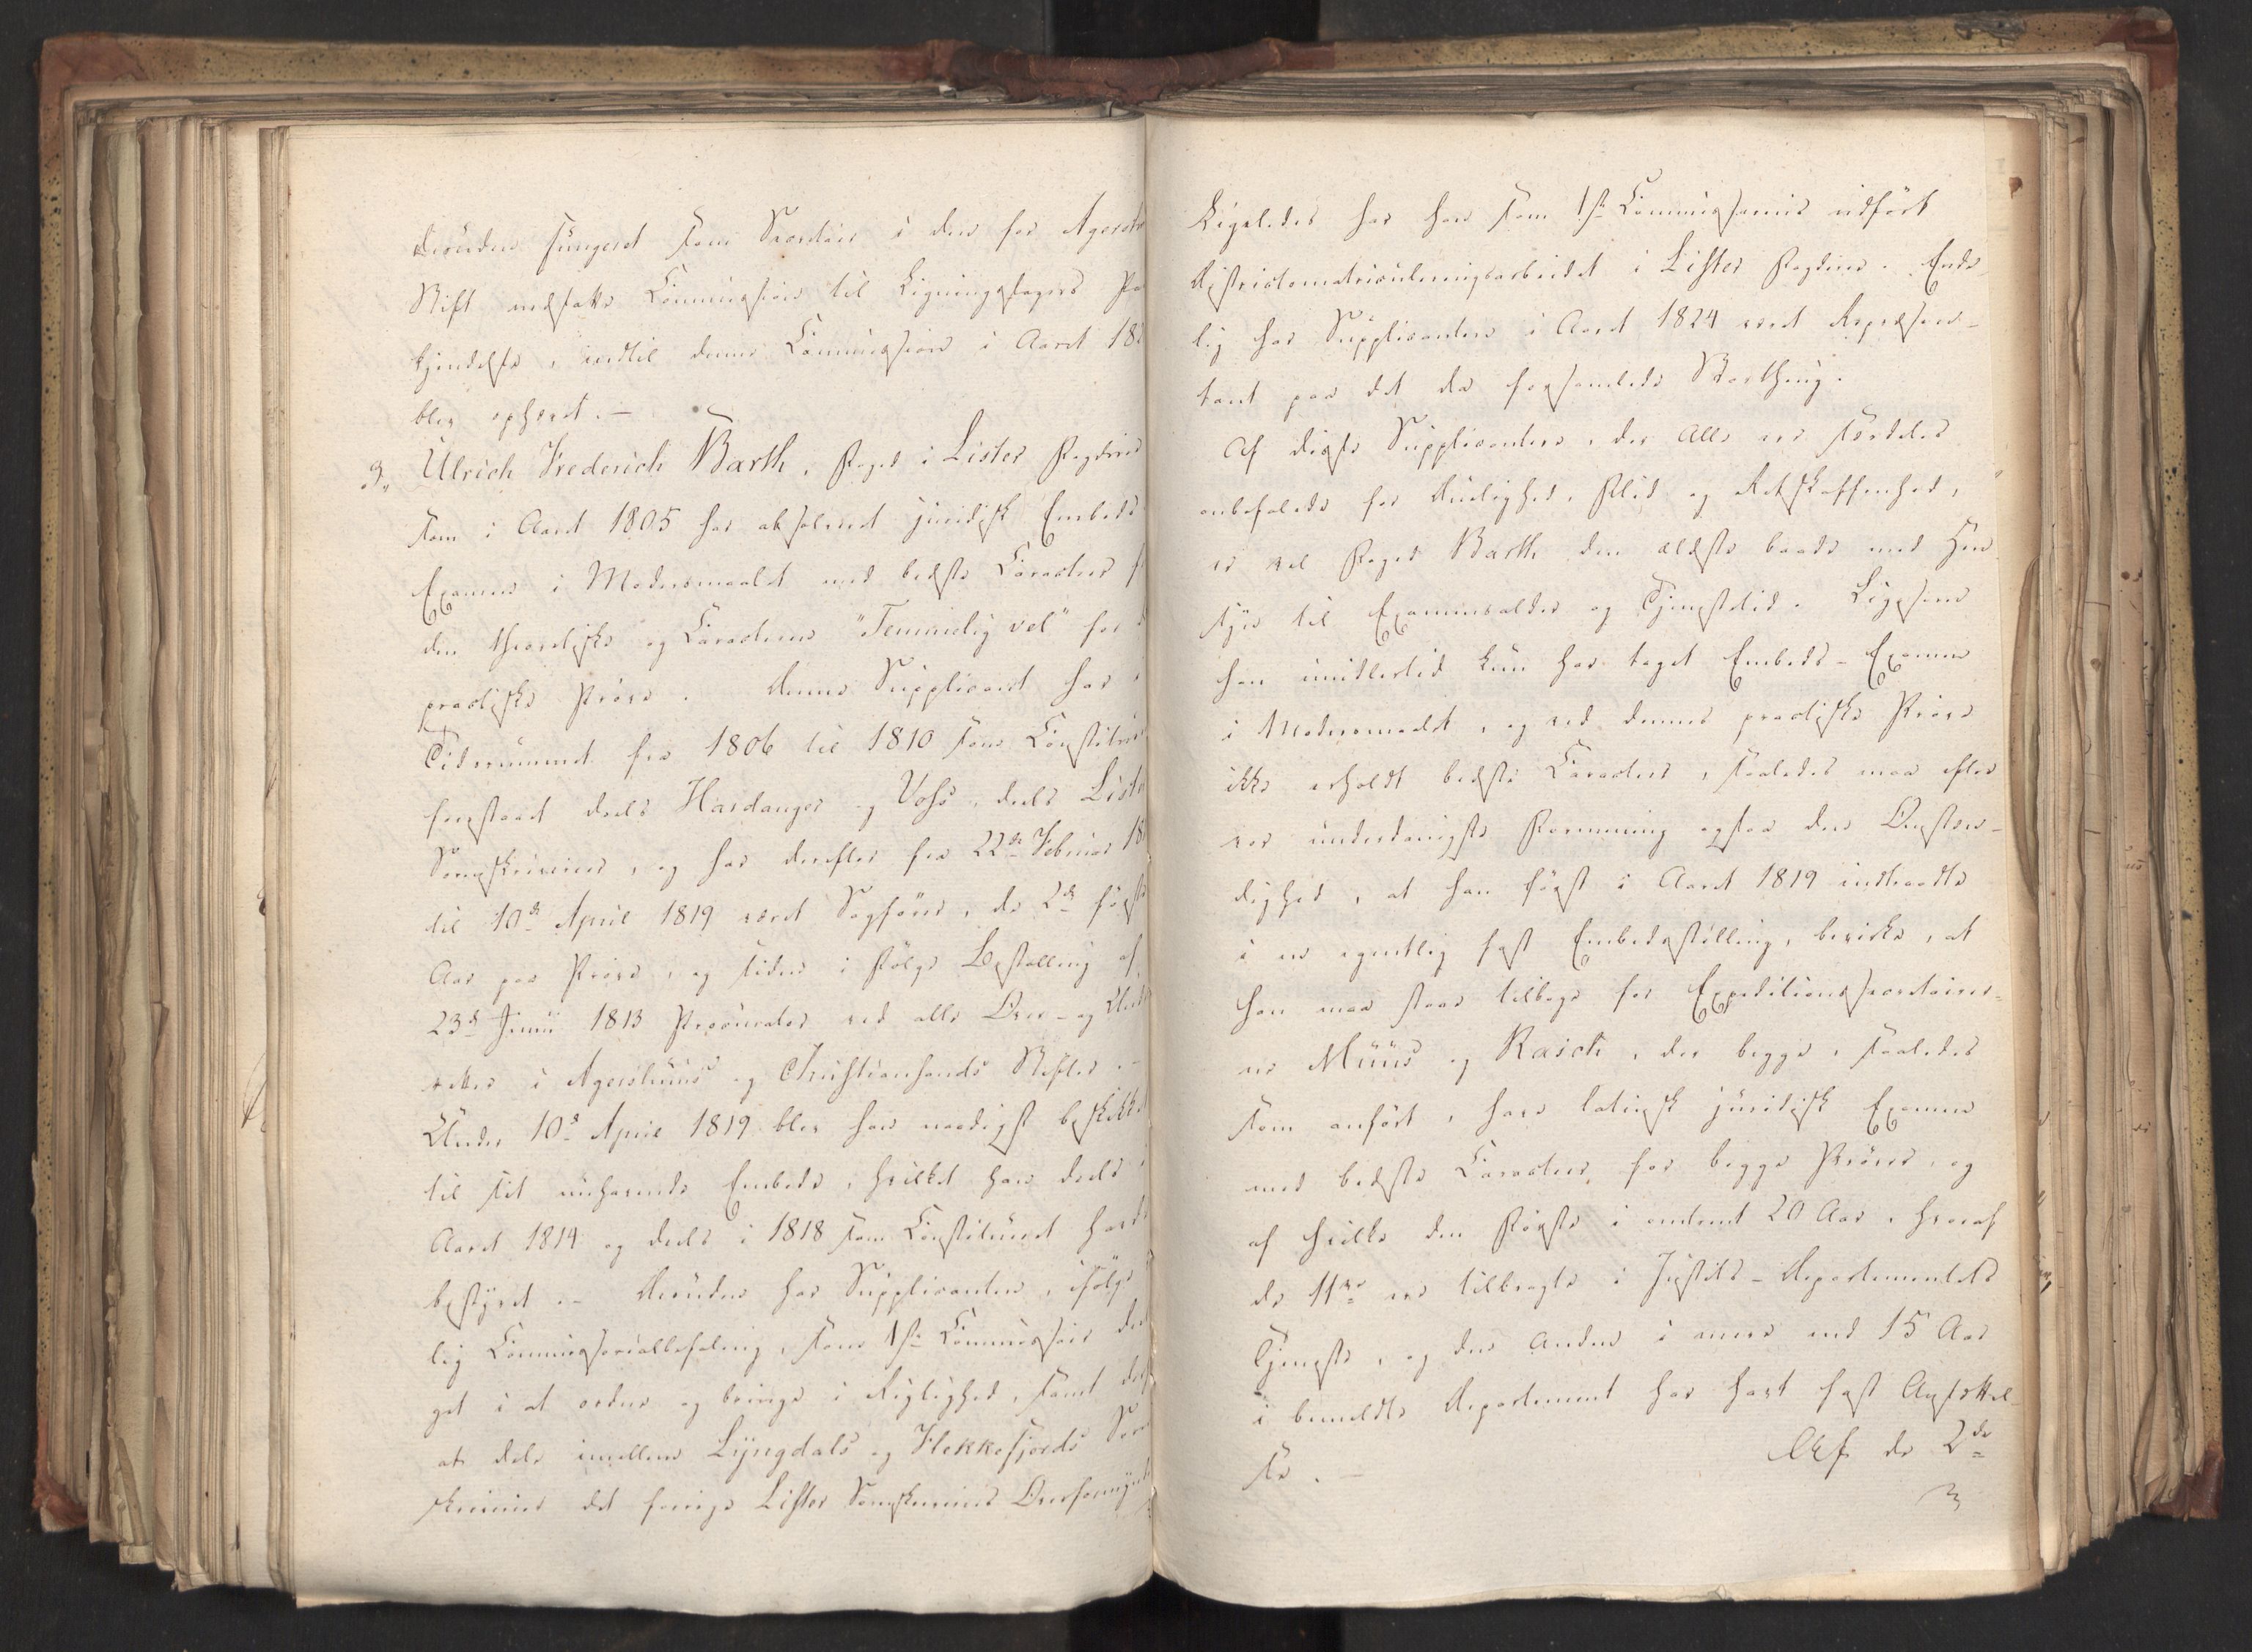 desuden fungeret som Secretair i den for Agershu
Stift nedsatte Commission til Ligningsfagers Paa
kjendelse, indtil denne Commission i Aaret 182
blev ophævet. —
3, Ulrich Frederich Barth, Foged i Lister Fogderie
som i Aaret 1805 har absolveret juridisk Embeds
Examen i Modersmaalet med bedste Caracteer f
den theoretiske og Caracteren "Temmelig vel" for d
practiske Prøve. Denne Supplicant har i
Tidsrummet fra 1806 til 1810 som Constitue
forestaaet deels Hardanger og Voss, deels Liste
Sorenskriverier, og har derefter fra 22de Februar 18
til 10de April 1819 været Sagfører, de 2de første
Aar paa Prøve, og siden i Følge Bestalling af
23de Junii 1813 Procurator ved alle Over- og Und
retter i Agershuus og Christiansands Stifter. —
Under 10de April 1819 blev han naadigst beskikket
til sit nuhavende Embede, hvilket han deels i
Aaret 1814 og deels i 1818 som Constitueret havde
bestyret. — Desuden har Supplicanten, ifølge
lig Commissorialbefaling, som 1ste Commissair del
get i at ordne og bringe i Rigtighed, samt der
at dele imellem Lyngdals og Flekkefjords Soren
skriverier det forrige Lister Sorenskriveries Overformynd
Ligeledes har han som 1ste Commissarius udført
Districtsmatriculeringsarbeidet i Lister Fogderie. Ende-
lig har Supplicanten i Aaret 1824 været Repræsen-
tant paa det da forsamlede Storthing.
Af disse Supplicantere, der Alle ere særdeles
anbefalede for Duelighed, Flid og Retskaffenhed,
er vel Foged Barth den ældste baade med Hen-
syn til Examensalder og Tjenestetid. Ligesom
han imidlertid kun har taget Embeds-Examen
i Modersmaalet, og ved dennes practiske Prøve
ikke erholdt bedste Caracteer, saaledes maa efter
vor underdanigste Formening ogsaa den Omstæn-
dighed, at han først i Aaret 1819 indtraadte
i en egentlig fast Embedsstilling, bevirke, at
han maa staae tilbage for Expeditionssecretairer-
ne Muus og Rasch, der begge, saaledes
som anført, have latinsk juridisk Examen
med bedste Caracteer for begge Prøver, og
af hvilke den Første i omtrent 20 Aar, hvoraf
de 11ve ere tilbragte i Justits-Departementets
Tjeneste, og den Anden i mere end 15 Aar
i bemeldte Departement har havt fast Ansættel-
se. —
Af de 2de